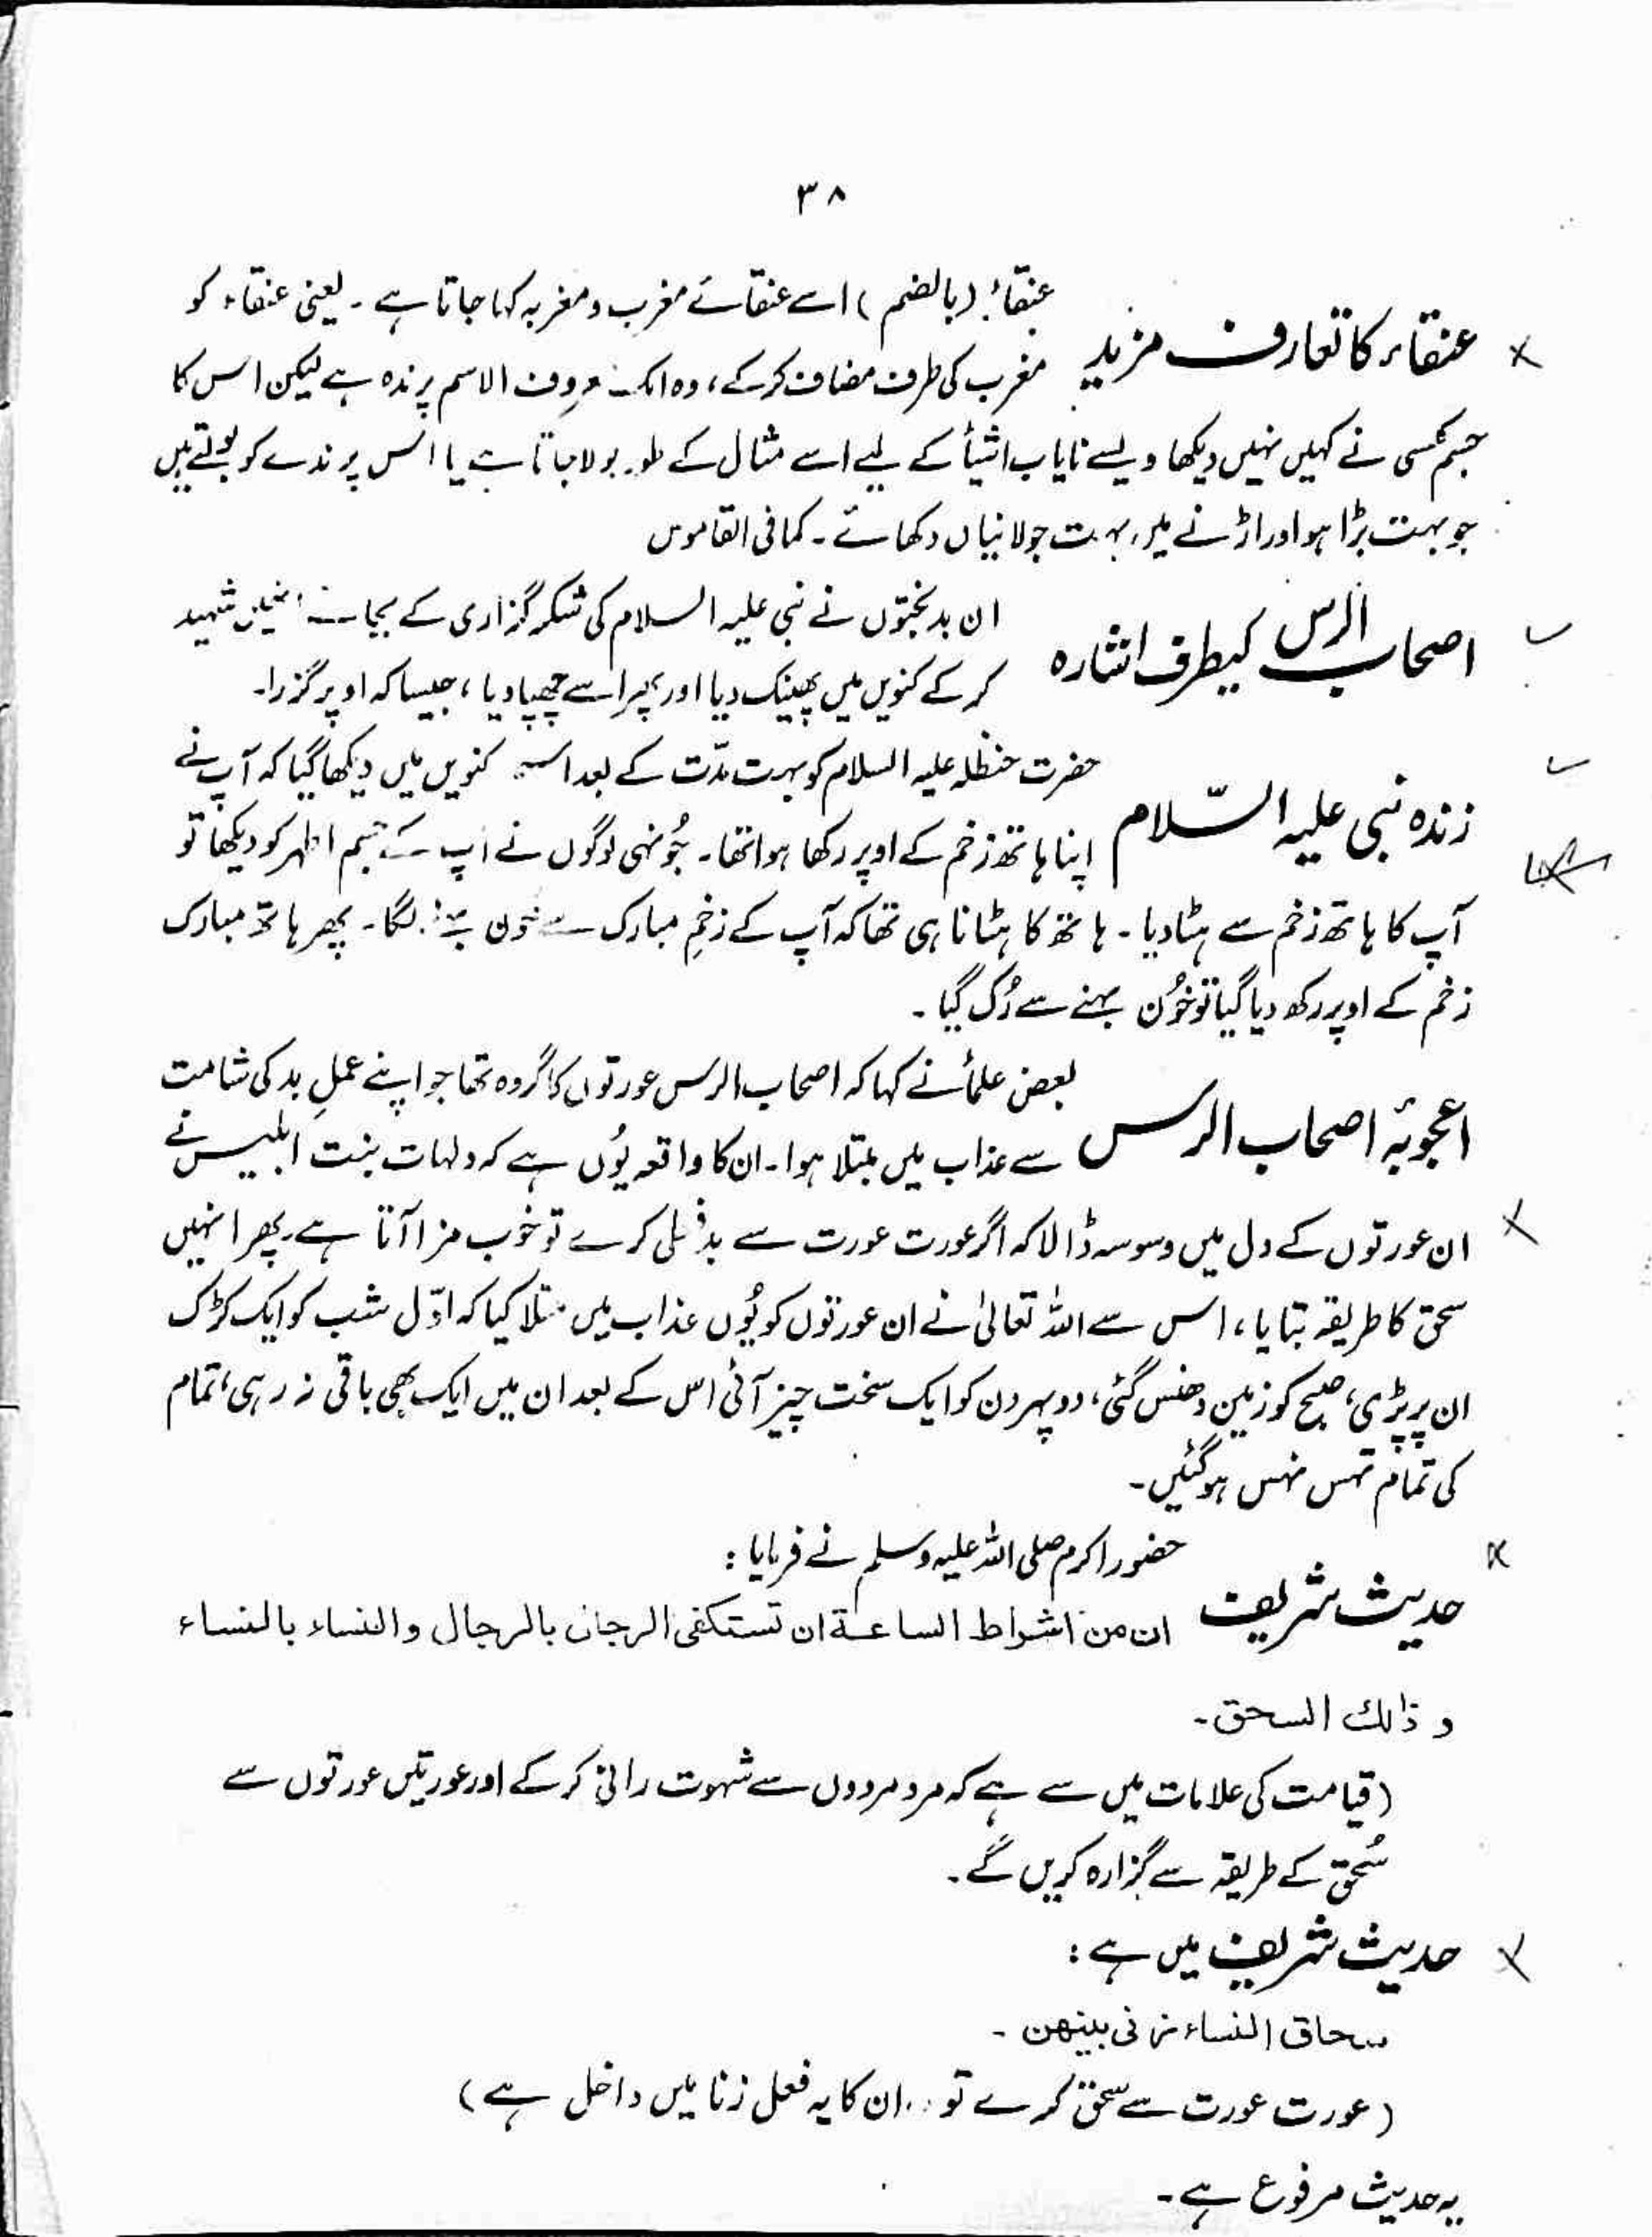 ۳۸
عنقاء کا تعارف مزید
عنقاءُ (بالضم) اسے عنقائے مغرب و مغربہ کہا جاتا ہے ۔ یعنی عنقاء کو
مغرب کی طرف مضاف کرکے، وہ ایک معروف الاسم پرندہ ہے لیکن اس کا
جسم کسی نے کہیں نہیں دیکھا ویسے نایاب اشیأ کے لیے اسے مثال کے طور بولا جاتا ہے یا اس پرندے کو بولتے ہیں
جو بہت بڑا ہو اور اڑنے میں بہت جولانیاں دکھائے ۔ کما فی القاموس
اصحاب الرس کیطرف اشارہ
ان بدبختوں نے نبی علیہ السلام کی شکر گزاری کے بجائے انہیں شہید
کر کے کنویں میں پھینک دیا اور پھر اسے چھپا دیا ، جیسا کہ اوپر گزرا۔
زندہ نبی علیہ السّلام
حضرت حنظلہ علیہ السلام کو بہت مدّت کے بعد اسی کنویں میں دیکھا گیا کہ آپ نے
اپنا ہاتھ زخم کے اوپر رکھا ہوا تھا۔ جُونہی لوگوں نے آپ کے جسم اطہر کو دیکھا تو
آپ کا ہاتھ زخم سے ہٹا دیا ۔ ہاتھ کا ہٹانا ہی تھا کہ آپ کے زخمِ مبارک سے خون بہنے لگا۔ پھر ہاتھ مبارک
زخم کے اوپر رکھ دیا گیا تو خُون بہنے سے رُک گیا ۔
اعجوبۂ اصحاب الرس
بعض علمأ نے کہا کہ اصحاب الرس عورتوں کا گروہ تھا جو اپنے عملِ بد کی شامت
سے عذاب میں مبتلا ہوا۔ ان کا واقعہ یُوں ہے کہ دلہات بنت ابلیس نے
ان عورتوں کے دل میں وسوسہ ڈالا کہ اگر عورت عورت سے بدفعلی کرے تو خوب مزا آتا ہے۔ پھر انہیں
سحق کا طریقہ بتایا ، اس سے اللہ تعالیٰ نے ان عورتوں کو یُوں عذاب میں مبتلا کیا کہ اوّل شب کو ایک کڑک
ان پر پڑی، صبح کو زمین دھنس گئی، دوپہر دن کو ایک سخت چیز آئی اس کے بعد ان میں ایک بھی باقی نہ رہی، تمام
کی تمام تہس نہس ہوگئیں۔
حدیث شریف
حضور اکرم صلی اللہ علیہ وسلم نے فرمایا :
ان من اشراط الساعة ان تستكفی الرجال بالرجال والنساء بالنساء
و ذالك السحق۔
(قیامت کی علامات میں سے ہے کہ مرد مردوں سے شہوت رانی کرکے اور عورتیں عورتوں سے
سُحق کے طریقہ سے گزارہ کریں گے۔
حدیث شریف میں ہے :
سحاق النساء زنی بینهن ۔
(عورت عورت سے سحق کرے تو ان کا یہ فعل زنا میں داخل ہے)
یہ حدیث مرفوع ہے۔